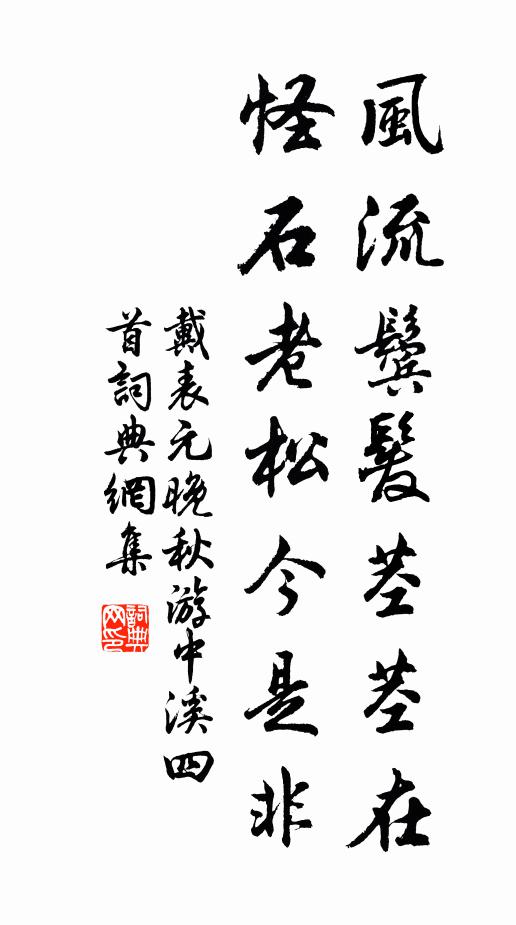 風流鬢髮莖莖在
怪石老松今是非
戴表元晚秋游中溪四
首詞典網集
詞典
网印